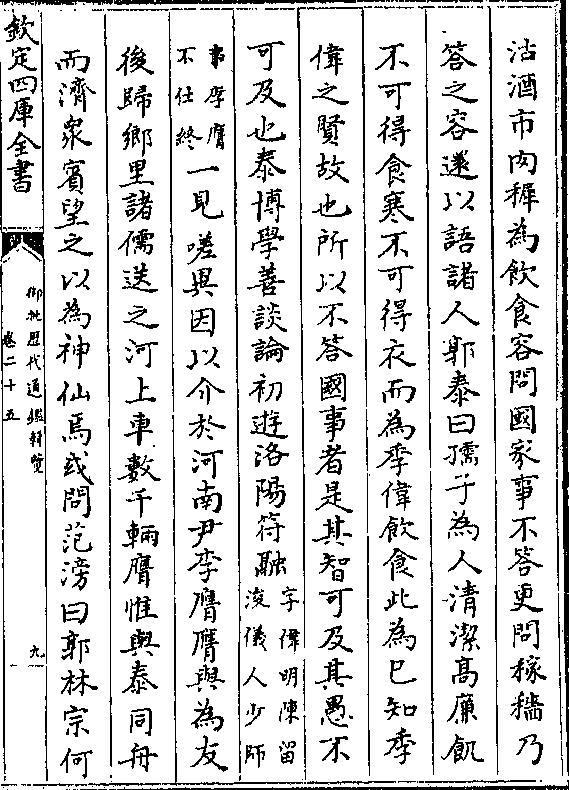 沽酒市肉穉為飲食容問國家事不答更問稼穡乃
答之容還以語諸人郭泰曰孺子為人清潔高廉飢
不可得食寒不可得衣而為季偉飲食此為已知季
偉之賢故也所以不答國事者是其智可及其愚不
可及也泰博學善談論初遊洛陽符融字偉明陳留浚儀人少師
事李膺不仕終一見嗟異因以介於河南尹李膺膺與為友
後歸鄉里諸儒送之河上車數千輛膺惟與泰同舟
而濟衆賓望之以為神仙焉或問范滂曰郭林宗何
欽定四庫全書
御批歷代通鑑輯覽
卷二十五
九